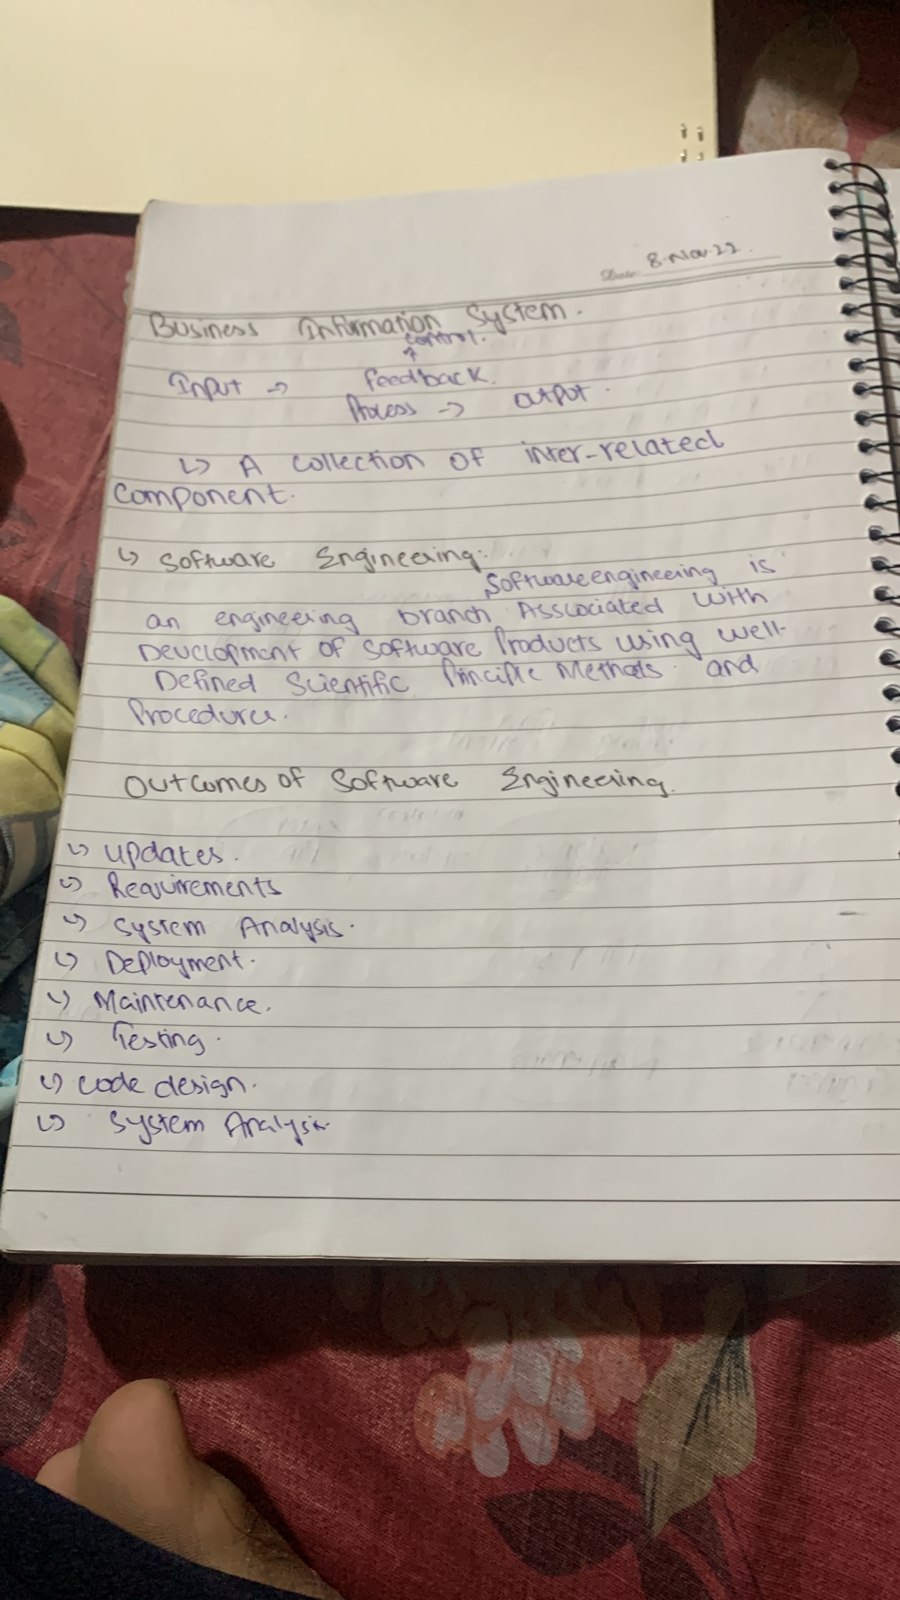 Date 8.Nov.22.
Business Information System.
control.
Input → feedback.
Process → output.
↳ A collection of inter-related
component.
↳ Software Engineering:
Software engineering is
an engineering branch Asscociated with
Development of software Products using well-
Defined Scientific Principle Methods. and
Procedure.
Outcomes of Software Engineering.
↳ updates.
↳ Requirements
↳ System Analysis.
↳ Deployment.
↳ Maintenance.
↳ Testing.
↳ code design.
↳ System Analysis.